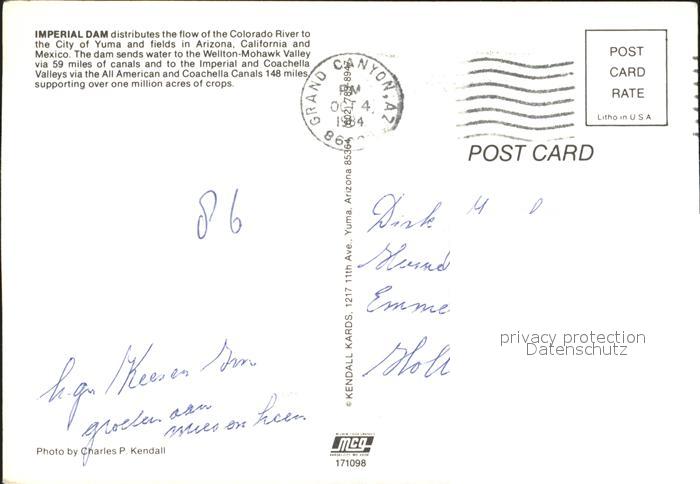 IMPERIAL DAM distributes the flow of the Colorado River to
the City of Yuma and fields in Arizona, California and
Mexico. The dam sends water to the Wellton-Mohawk Valley
via 59 miles of canals and to the Imperial and Coachella
Valleys via the All American and Coachella Canals 148 miles,
supporting over one million acres of crops.
GRAND CANYON, AZ
PM
OCT 4
1984
POST
CARD
RATE
Litho in U S A
POST CARD
86
Dirk
Emme
Holl
privacy protection
Datenschutz
groeten aan
Photo by Charles P. Kendall
© KENDALL KARDS, 1217 11th Ave., Yuma, Arizona 85364
mcg
171098